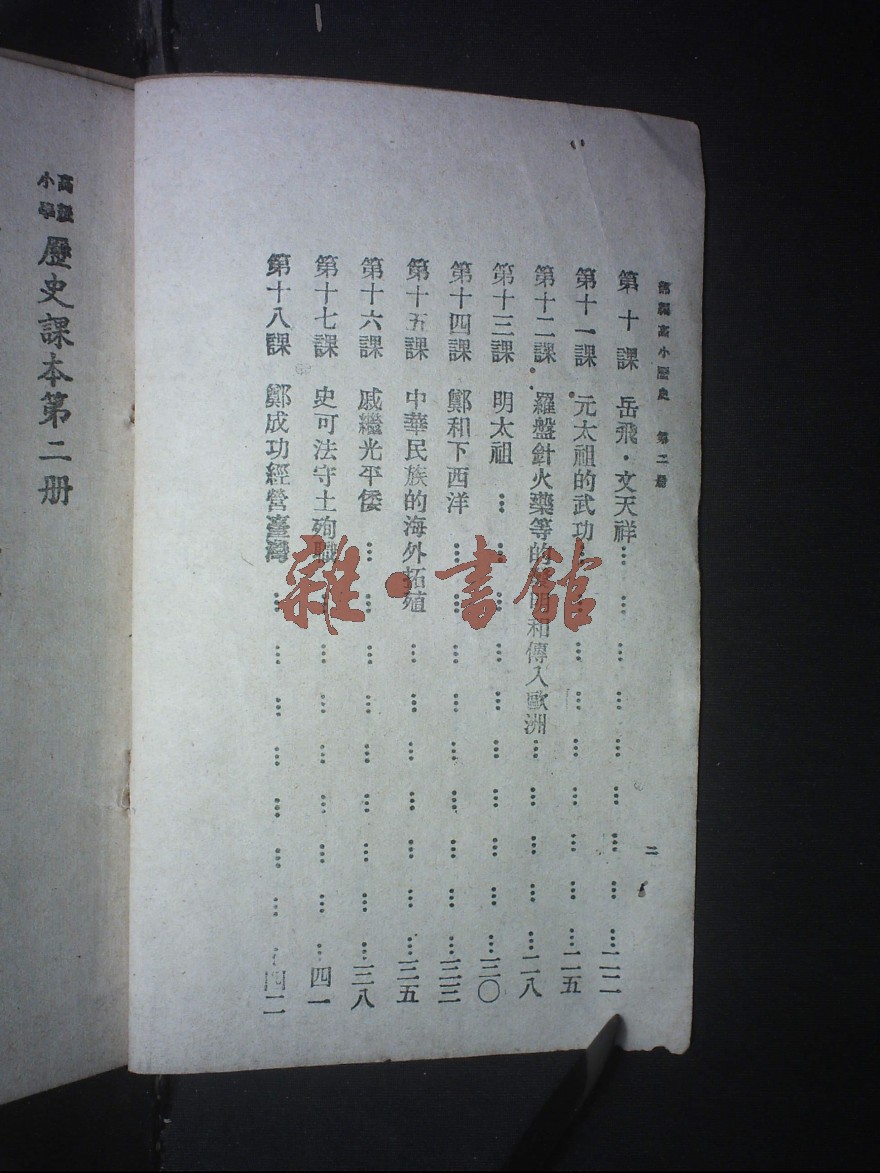 編高小歷史 第二册
二
第十課 岳飛·文天祥……二二
第十一課 元太祖的武功……二五
第十二課 羅盤針火藥等的發明和傳入歐洲……二八
第十三課 明太祖……三〇
第十四課 鄭和下西洋……三三
第十五課 中華民族的海外拓殖……三五
第十六課 戚繼光平倭……三八
第十七課 史可法守土殉職……四一
第十八課 鄭成功經營臺灣……四二
高級小學 歷史課本第二册
雜·書館